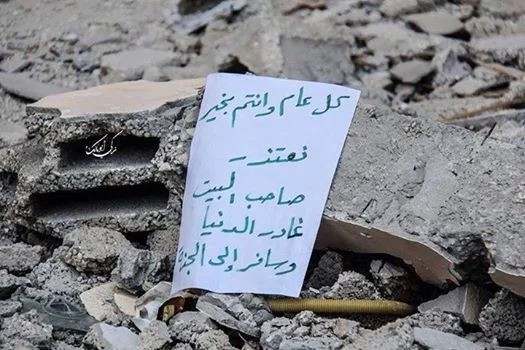 كل عام وانتم بخير
نعتذر
صاحب البيت
غادر الدنيا
وسافر إلى الجنة